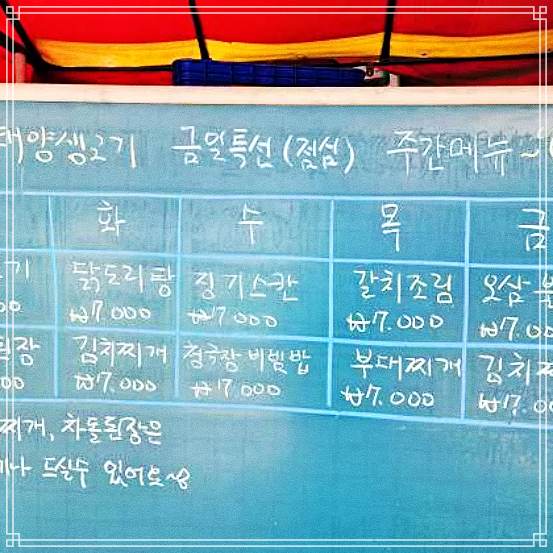 태양생고기 금일특선(점심) 주간메뉴~
화 수 목 금
기 닭도리탕 징기스칸 갈치조림 오삼불
00 ₩7.000 ₩7.000 ₩7.000 ₩7.00
된장 김치찌개 청국장비빔밥 부대찌개 김치찌
00 ₩7.000 ₩7.000 ₩7.000 ₩7.00
찌개, 차돌된장은
나 드실수 있어요~